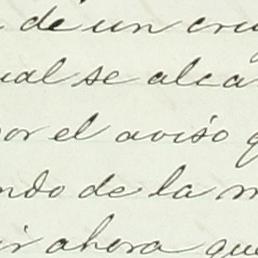 de un cru
ual se alca
or el aviso q
ndo de la m
ir ahora que